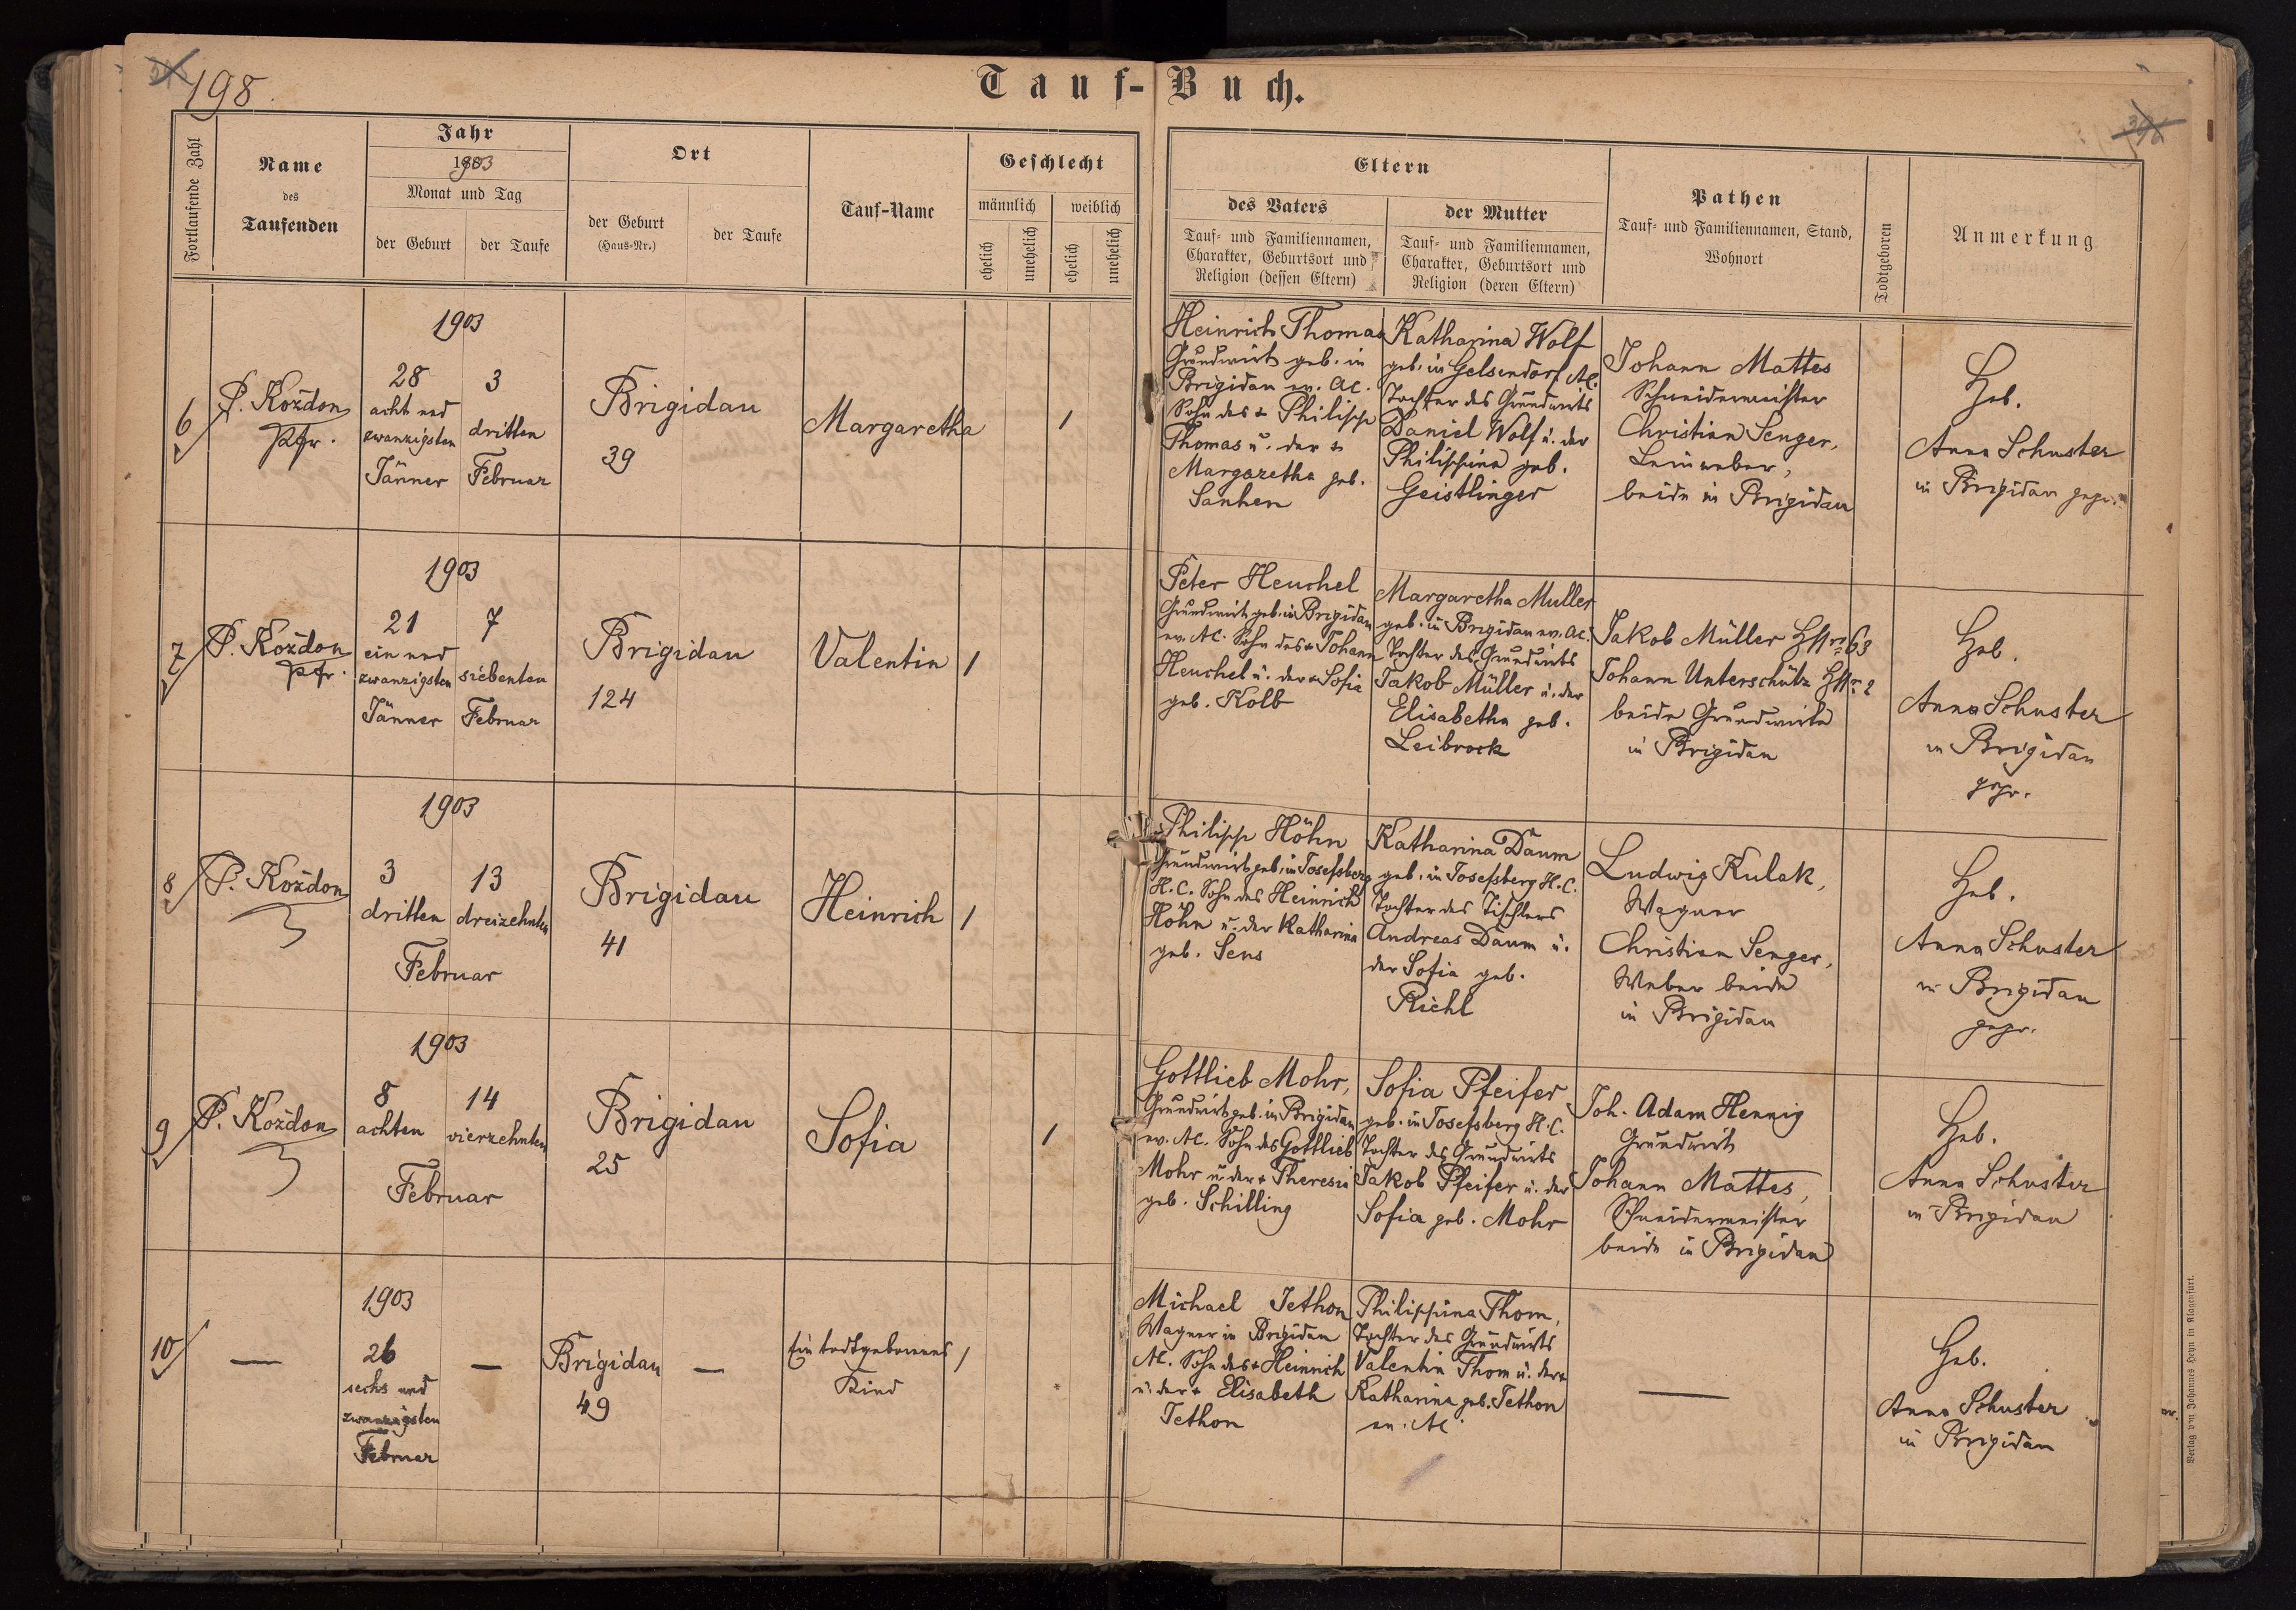 198.
Tauf-Buch.
Fortlaufende Zahl
Name
des
Taufenden
Jahr
1903
Monat und Tag
der Geburt
der Taufe
Ort
der Geburt
(Haus-Nr.)
der Taufe
Tauf-Name
Geschlecht
männlich
weiblich
ehelich
unehelich
ehelich
unehelich
Eltern
des Vaters
Tauf- und Familiennamen,
Charakter, Geburtsort und
Religion (dessen Eltern)
der Mutter
Tauf- und Familiennamen,
Charakter, Geburtsort und
Religion (deren Eltern)
Pathen
Tauf- und Familiennamen, Stand,
Wohnort
Todtgeboren
Anmerkung
6
P. Koždon
Pfr.
1903
28
acht und
zwanzigsten
Jänner
3
dritten
Februar
Brigidau
39
Margaretha
1
Heinrich Thomas
Grundwirt geb. in
Brigidau ev. A.C.
Sohn des + Philipp
Thomas u. der +
Margaretha geb.
Sanhen
Katharina Wolf
geb. in Gelsendorf A.C.
Tochter des Grundwirts
Daniel Wolf u. der
Philippina geb.
Geistlinger
Johann Mattes
Schneidermeister
Christian Senger,
Leinweber,
beide in Brigidau
Heb.
Anna Schuster
in Brigidau gepr.
7
P. Koždon
Pfr.
1903
21
ein und
zwanzigsten
Jänner
7
siebenten
Februar
Brigidau
124
Valentin
1
Peter Heuchel
Grundwirt geb. in Brigidau
ev. A.C. Sohn des + Johann
Heuchel u. der + Sofia
geb. Kolb
Margaretha Muller
geb. in Brigidau ev. A.C.
Tochter des Grundwirts
Jakob Müller u. der
Elisabetha geb.
Leibrock
Jakob Müller HNr. 63
Johann Unterschütz HNr. 2
beide Grundwirte
in Brigidau
Heb.
Anna Schuster
in Brigidau
gepr.
8
P. Koždon
1903
3
dritten
13
dreizehnten
Februar
Brigidau
41
Heinrich
1
Philipp Höhn
Grundwirt geb. in Josefsberg
H.C. Sohn des Heinrich
Höhn u. der Katharina
geb. Sens
Katharina Daum
geb. in Josefsberg H.C.
Tochter des Tischlers
Andreas Daum u.
der Sofia geb.
Richl
Ludwig Kulak,
Wagner
Christian Senger,
Weber beide
in Brigidau
Heb.
Anna Schuster
in Brigidau
gepr.
9
P. Koždon
1903
8
achten
14
vierzehnten
Februar
Brigidau
25
Sofia
1
Gottlieb Mohr,
Grundwirt geb. in Brigidau
ev. A.C. Sohn des Gottlieb
Mohr u. der + Theresia
geb. Schilling
Sofia Pfeifer
geb. in Josefsberg H.C.
Tochter des Grundwirts
Jakob Pfeifer u. der
Sofia geb. Mohr
Joh. Adam Hennig
Grundwirt
Johann Mattes,
Schneidermeister
beide in Brigidau
Heb.
Anna Schuster
in Brigidau
10
—
1903
26
sechs und
zwanzigsten
Februar
—
Brigidau
49
—
Ein todtgeborenes
Kind
1
Michael Jethon
Wagner in Brigidau
A.C. Sohn des + Heinrich
u. der + Elisabeth
Jethon
Philippina Thom,
Tochter des Grundwirts
Valentin Thom u. der +
Katharina geb. Jethon
ev. A.C.
—
Heb.
Anna Schuster
in Brigidau
Verlag von Johannes Heyn in Klagenfurt.